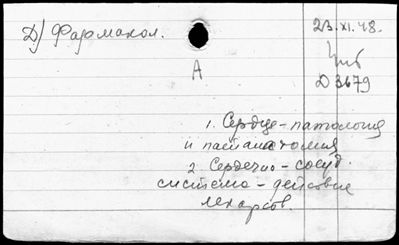 Д) Фармакол.
23.XI.48.
А
Д 3679
1. Сердце - патология
и патанатомия
2. Сердечно - сосуд.
система - действие
лекарств.